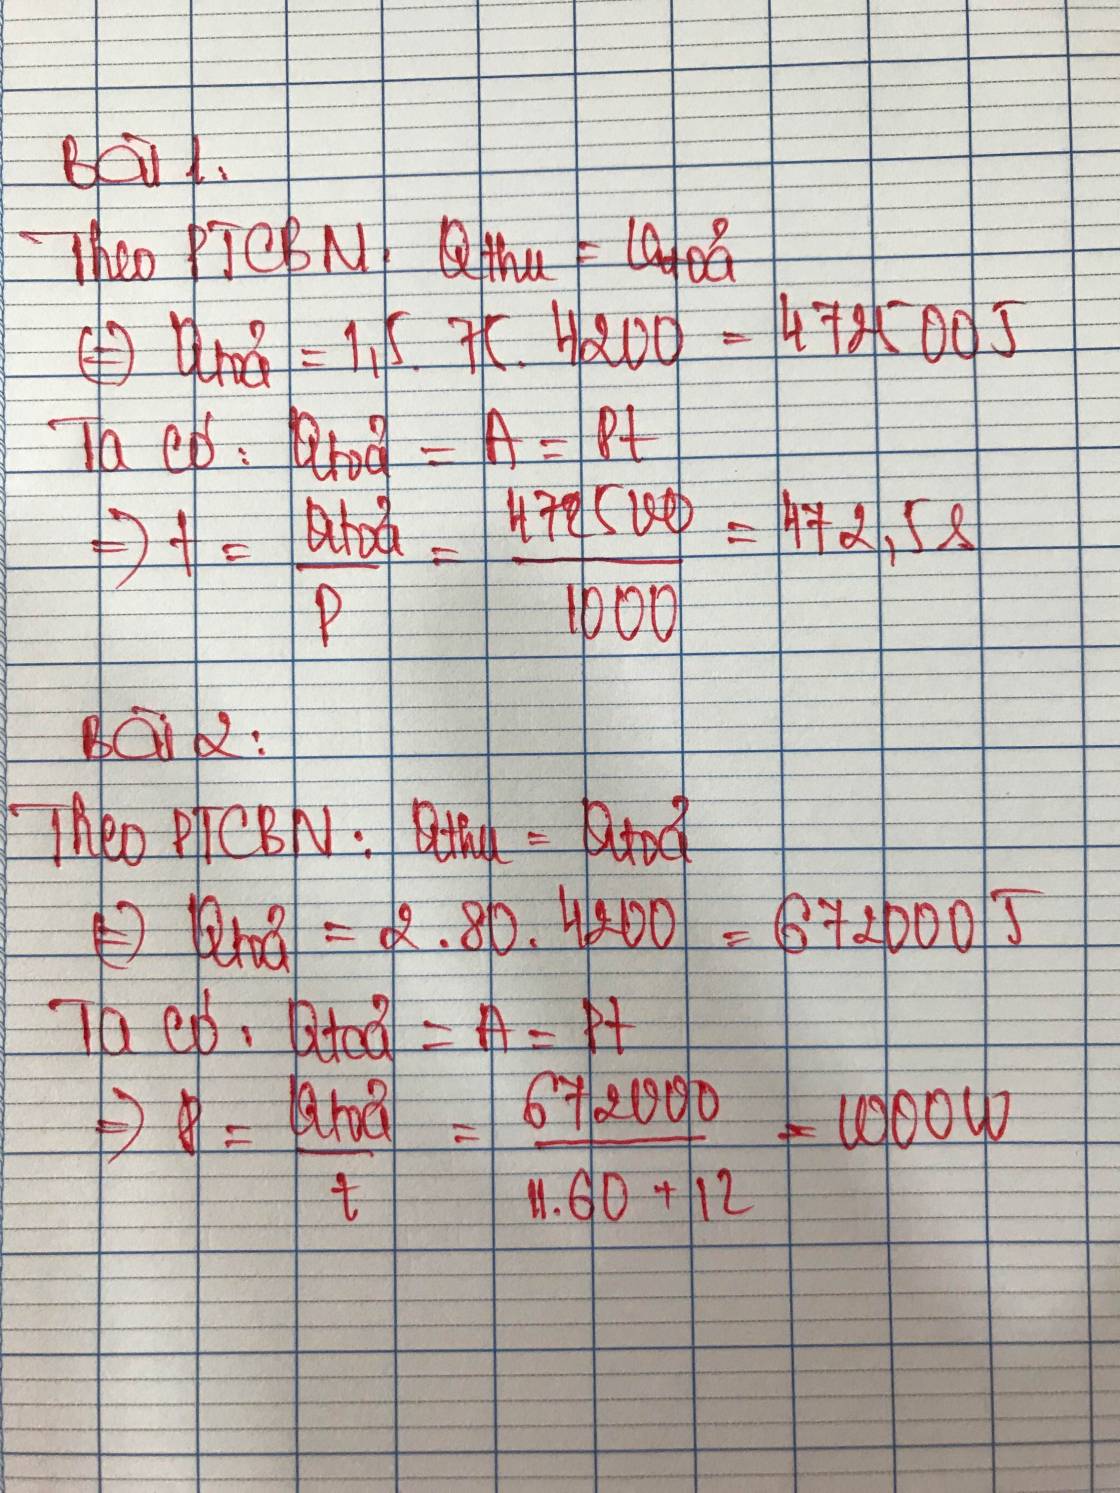 Bài 1:
Theo PTCBN: Qthu = Qtoả
⇔ Qtoả = 1,5 . 75 . 4200 = 472500J
Ta có: Qtoả = A = Pt
⇒ t = Qtoả / P = 472500 / 1000 = 472,5s
Bài 2:
Theo PTCBN: Qthu = Qtoả
⇔ Qtoả = 2 . 80 . 4200 = 672000J
Ta có: Qtoả = A = Pt
⇒ P = Qtoả / t = 672000 / 11.60 + 12 = 1000W